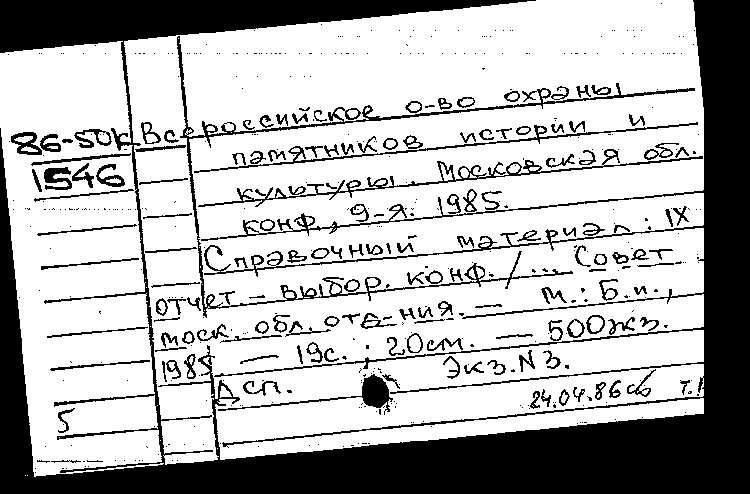 86-50к Всероссийское о-во охраны
1546 памятников истории и
культуры. Московская обл.
конф., 9-я. 1985.
Справочный материал: IX
отчет.- выбор. конф. / ... Совет
моск. обл. отд-ния. — М.: Б.и.,
1985 — 19с. ; 20см. — 500экз.
Дсп. Экз. N3.
5 24.04.86